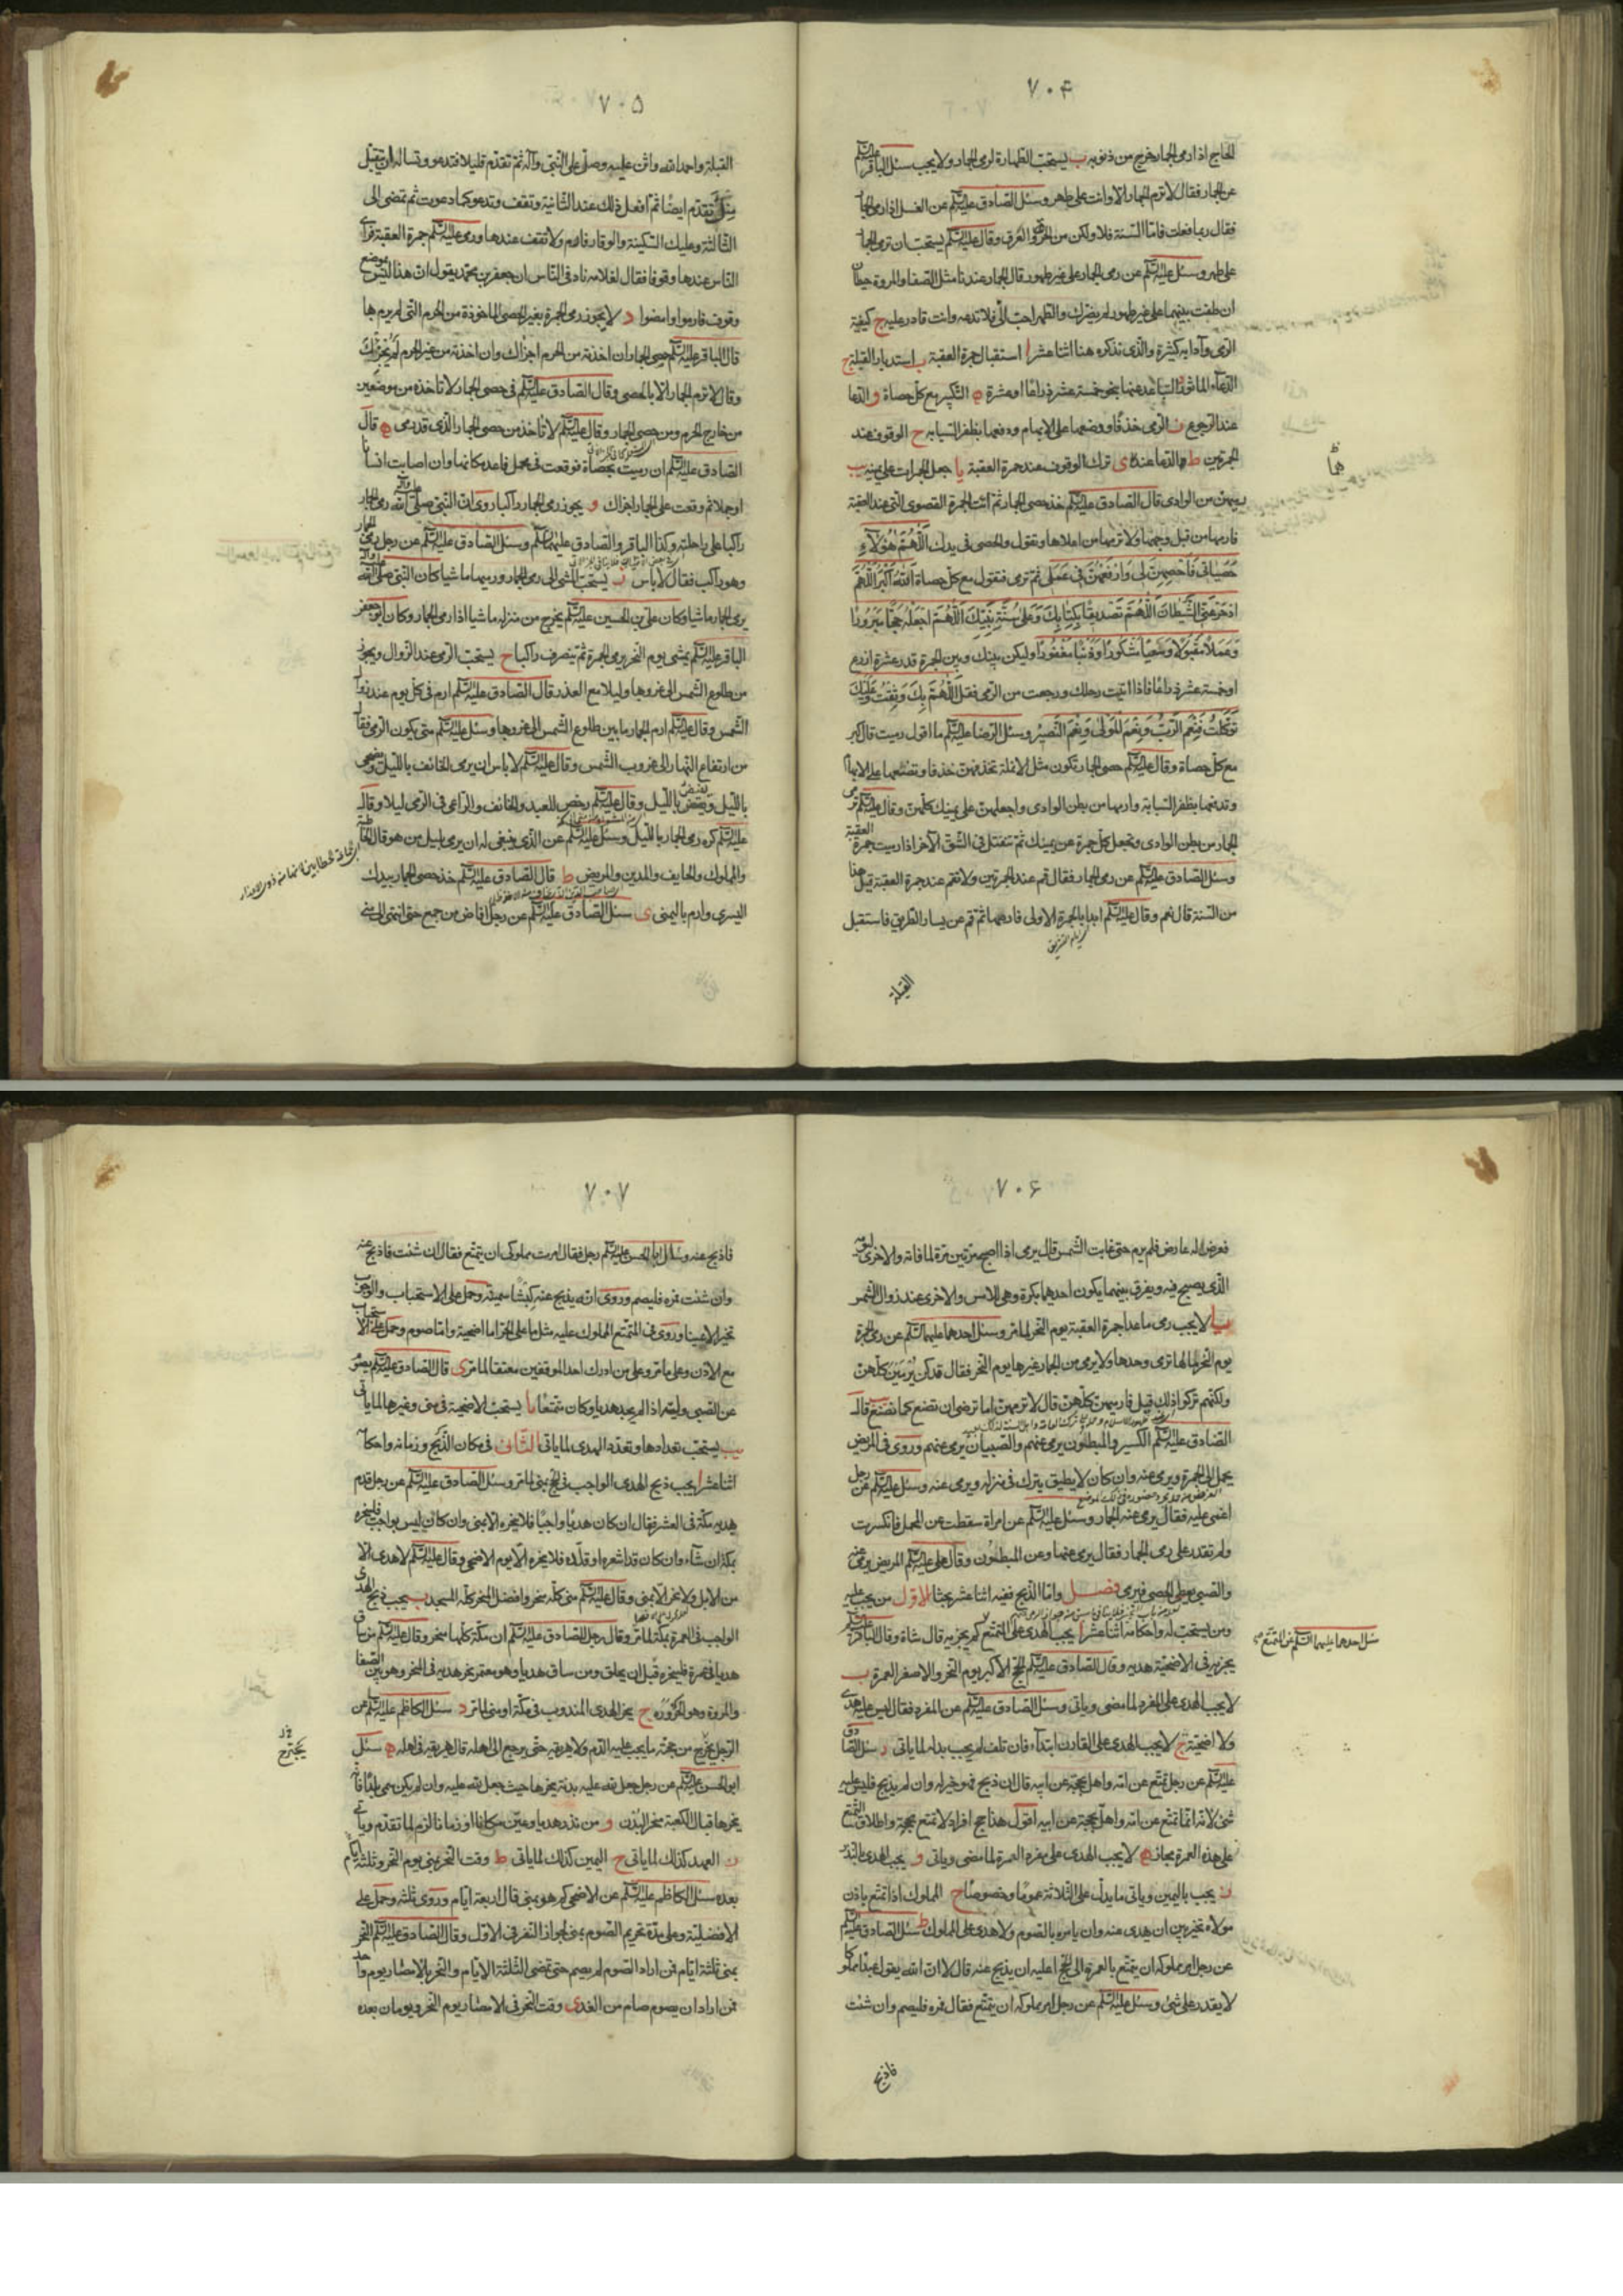 ٧٠۴
الحاج اذا رمى الجمار خرج من ذنوبه ب يستحب الطهارة لرمى الجمار ولا يجب سئل الباقر عليه السلم
عن الجمار فقال لا ترم الجمار الا وانت على طهر وسئل الصادق عليه السلم عن الغسل اذا رمى الجمار
فقال ربما فعلت فاما السنة فلا ولكن من الحر والعرق وقال عليه السلم يستحب ان ترمى الجمار
على طهر وسئل عليه السلم عن رمى الجمار على غير طهور قال الجمار عندنا مثل الصفا والمروة حيطان
ان طفت بينهما على غير طهور لم يضرك والطهر احب الى فلا تدعه وانت قادر عليه ج كيفية
الرمى وآدابه كثيرة والذى نذكره هنا اثنا عشر ا استقبال جمرة العقبة ب استدبار القبلة ج
الدعاء الماثور د التباعد عنها بنحو خمسة عشر ذراعا او عشرة ه التكبير مع كل حصاة و الدعا
عند الرجوع ز الرمى خذفا ووضعها على الابهام ودفعها بظفر السبابه ح الوقوف عند
الجمرتين ط والدعا عندها ى ترك الوقوف عند جمرة العقبة يا جعل الجمرات على يمينه يب
رميهن من الوادى قال الصادق عليه السلم خذ حصى الجمار ثم ائت الجمرة القصوى التى عند العقبة
فارمها من قبل وجهها ولا ترمها من اعلاها وتقول والحصى فى يدك اللهم هؤلاء
حصياتى فاحصهن لى وارفعهن فى عملى ثم ترمى فتقول مع كل حصاة الله اكبر اللهم
ادحر عنى الشيطان اللهم تصديقا بكتابك وعلى سنة نبيك اللهم اجعله حجا مبرورا
وعملا مقبولا وسعيا مشكورا وذنبا مغفورا وليكن بينك وبين الجمرة قدر عشرة اذرع
او خمسة عشر ذراعا فاذا اتيت رحلك ورجعت من الرمى فقل اللهم بك وثقت وعليك
توكلت فنعم الرب ونعم المولى ونعم النصير وسئل الرضا عليه السلم ما اقول اذا رميت قال كبر
مع كل حصاة وقال عليه السلم حصى الجمار تكون مثل الانملة تخذفهن خذفا وتضعها على الابهام
وتدفعها بظفر السبابة وارمها من بطن الوادى واجعلهن على يمينك كلهن وقال عليه السلم ترمى
الجمار من بطن الوادى وتجعل كل جمرة عن يمينك ثم تنفتل فى الشق الآخر اذا رميت جمرة العقبة
وسئل الصادق عليه السلم عن رمى الجمار فقال قم عند الجمرتين ولا تقم عند جمرة العقبة قيل هذا
من السنة قال نعم وقال عليه السلم ابدا بالجمرة الاولى فارمها ثم قم عن يسار الطريق فاستقبل
ايام التشريق
القبلة
هما
٧٠۵
القبلة واحمد الله واثن عليه وصل على النبى وآله ثم تقدم قليلا فتدعو وتساله ان يتقبل
منك ثم تقدم ايضا ثم افعل ذلك عند الثانية وتقف وتدعو كما دعوت ثم تمضى الى
الثالثة وعليك السكينة والوقار فارم ولا تقف عندها ورمى عليه السلم جمرة العقبة فراى
الناس عندها وقوفا فقال لغلامه ناد فى الناس ان جعفر بن محمد يقول ان هذا ليس موضع
وقوف فارموا وامضوا د لا يجوز رمى الجمرة بغير الحصى الماخوذة من الحرم التى لم يرم بها
قال الباقر عليه السلم حصى الجمار ان اخذته من الحرم اجزاك وان اخذته من غير الحرم لم يجزئك
وقال لا ترم الجمار الا بالحصى وقال الصادق عليه السلم فى حصى الجمار لا تاخذه من موضعين
من خارج الحرم ومن حصى الجمار وقال عليه السلم لا تاخذ من حصى الجمار الذى قد رمى ه قال
الصادق عليه السلم ان رميت بحصاة فوقعت فى محمل فاعد مكانها وان اصابت انسانا
او جملا ثم وقعت على الجمار اجزاك و يجوز رمى الجمار راكبا روى ان النبى صلى الله عليه وآله رمى الجمار
راكبا على راحلته وكذا الباقر والصادق عليهما السلم وسئل الصادق عليه السلم عن رجل رمى الجمار
وهو راكب فقال لا باس ز يستحب المشى الى رمى الجمار ورميها ماشيا كان النبى صلى الله عليه وآله
يرمى الجمار ماشيا وكان على بن الحسين عليه السلم يخرج من منزله ماشيا اذا رمى الجمار وكان ابو جعفر
الباقر عليه السلم يمشى يوم النحر يرمى الجمرة ثم ينصرف راكبا ح يستحب الرمى عند الزوال ويجوز
من طلوع الشمس الى غروبها وليلا مع العذر قال الصادق عليه السلم ارم فى كل يوم عند زوال
الشمس وقال عليه السلم ارم الجمار ما بين طلوع الشمس الى غروبها وسئل عليه السلم متى يكون الرمى فقال
من ارتفاع النهار الى غروب الشمس وقال عليه السلم لا باس ان يرمى الخائف بالليل ويضحى
بالليل ويفيض بالليل وقال عليه السلم رخص للعبد والخائف والراعى فى الرمى ليلا وقال
عليه السلم كره رمى الجمار بالليل وسئل عليه السلم عن الذى ينبغى له ان يرمى بليل من هو قال الحاطبة
والمملوك والخايف والمدين والمريض ط قال الصادق عليه السلم خذ حصى الجمار بيدك
اليسرى وارم باليمنى ى سئل الصادق عليه السلم عن رجل افاض من جمع حتى انتهى الى منى
٧٠۶
فعرض له عارض فلم يرم حتى غابت الشمس قال يرمى اذا اصبح مرتين مرة لما فاته والاخرى ليومه
الذى يصبح فيه ويفرق بينهما يكون احدهما بكرة وهى للامس والاخرى عند زوال الشمس
يا لا يجب رمى ما عدا جمرة العقبة يوم النحر لما مر وسئل احدهما عليهما السلم عن رمى الجمرة
يوم النحر ما لها ترمى وحدها ولا يرمى من الجمار غيرها يوم النحر فقال قد كن يرمين كلهن
ولكنهم تركوا ذلك قيل فارميهن كلهن قال لا ترمهن اما ترضى ان تصنع كما نصنع قال
الصادق عليه السلم الكسير والمبطلون يرمى عنهم والصبيان يرمى عنهم وروى فى المريض
يحمل الى الجمرة ويرمى عنه وان كان لا يطيق يترك فى منزله ويرمى عنه وسئل عليه السلم عن رجل
اغمى عليه فقال يرمى عنه الجمار وسئل عليه السلم عن امراة سقطت عن المحمل فانكسرت
ولم تقدر على رمى الجمار فقال يرمى عنها وعن المبطون وقال على عليه السلم المريض يرمى عنه
والصبى يعطى الحصى فيرمى فصل واما الذبح ففيه اثنا عشر بحثا الاول من يجب عليه
ومن يستحب له واحكامه اثنا عشر ا يجب الهدى على المتمتع كم يجزيه قال شاة وقال الباقر عليه السلم
يجزيه فى الاضحية هديه وقال الصادق عليه السلم الحج الاكبر يوم النحر والاصغر العمرة ب
لا يجب الهدى على المفرد لما مضى وياتى وسئل الصادق عليه السلم عن المفرد فقال ليس عليه هدى
ولا اضحية ج لا يجب الهدى على القارن ابتداء فان تلف لم يجب بدله لما ياتى د سئل الصادق
عليه السلم عن رجل تمتع عن امه واهل بحجة عن ابيه قال ان ذبح فهو خير له وان لم يذبح فليس عليه
شئ لانه انما تمتع عن امه واهل بحجة عن ابيه اقول هذا حج افراد لا تمتع بحجة واطلاق التمتع
على هذه العمرة مجاز ه لا يجب الهدى على مفرد العمرة لما مضى وياتى و يجب الهدى بالنذر
ز يجب باليمين وياتى ما يدل على الثلاثة عموما وخصوصا ح المملوك اذا تمتع باذن
مولاه تخير بين ان يهدى عنه وان يامره بالصوم ولا هدى على المملوك ط سئل الصادق عليه السلم
عن رجل امر مملوكه ان يتمتع بالعمرة الى الحج اعليه ان يذبح عنه قال لا ان الله يقول عبدا مملوكا
لا يقدر على شئ وسئل عليه السلم عن رجل امر مملوكه ان يتمتع فقال فمره فليصم وان شئت
فاذبح
سئل احدهما عليهما السلم عن المتمتع
٧٠٧
فاذبح عنه وسال ابا الحسن عليه السلم رجل فقال امرت مملوكى ان يتمتع فقال ان شئت فاذبح عنه
وان شئت فمره فليصم وروى انه يذبح عنه كبشا سمينا وحمل على الاستحباب والوجوب
تخيرا لا عينا وروى فى المتمتع المملوك عليه مثل ما على الحر اما اضحية واما صوم وحمل على الاستحباب
مع الاذن وعلى ما مر وعلى من ادرك احد الموقفين معتقا لما مر ى قال الصادق عليه السلم يصوم
عن الصبى وليه اذا لم يجد هديا وكان متمتعا يا يستحب الاضحية فى منى وغيرها لما ياتى
يب يستحب تعدادها وتعدد الهدى لما ياتى الثانى فى مكان الذبح وزمانه واحكامه
اثنا عشر ا يجب ذبح الهدى الواجب فى الحج بمنى لما مر وسئل الصادق عليه السلم عن رجل قدم
هديه مكة فى العشر فقال ان كان هديا واجبا فلا ينحره الا بمنى وان كان ليس بواجب فلينحره
بمكة ان شاء وان كان قد اشعره او قلده فلا ينحره الا يوم الاضحى وقال عليه السلم لا هدى الا
من الابل ولا نحر الا بمنى وقال عليه السلم منى كله منحر وافضل المنحر كله المسجد ب يجب ذبح الهدى
الواجب فى العمرة بمكة لما مر وقال رجل للصادق عليه السلم ان مكة كلها منحر وقال عليه السلم من ساق
هديا فى عمرة فلينحره قبل ان يحلق ومن ساق هديا وهو معتمر نحر هديه فى المنحر وهو بين الصفا
والمروة وهو الحزورة ج ينحر الهدى المندوب فى مكة او منى لما مر د سئل الكاظم عليه السلم عن
الرجل يخرج من حجته ما يجب عليه الدم ولا يهريقه حتى يرجع الى اهله قال يهريقه فى اهله ه سئل
ابو الحسن عليه السلم عن رجل جعل لله عليه بدنة ينحرها حيث جعل لله عليه وان لم يكن سمى بلدا فانه
ينحرها قبال الكعبة منحر البدن و من نذر هديا وعين مكانا او زمانا لزم لما تقدم وياتى
ز العهد كذلك لما ياتى ح اليمين كذلك لما ياتى ط وقت النحر بمنى يوم النحر وثلثة ايام
بعده سئل الكاظم عليه السلم عن الاضحى كم هو بمنى قال اربعة ايام وروى ثلثه وحمل على
الافضلية وعلى مدة تحريم الصوم بمنى لجواز النفر فى الاول وقال الصادق عليه السلم النحر
بمنى ثلثة ايام فمن اراد الصوم لم يصم حتى تمضى الثلثة الايام والنحر بالامصار يوم واحد
فمن اراد ان يصوم صام من الغد ى وقت النحر فى الامصار يوم النحر ويومان بعده
يجترح